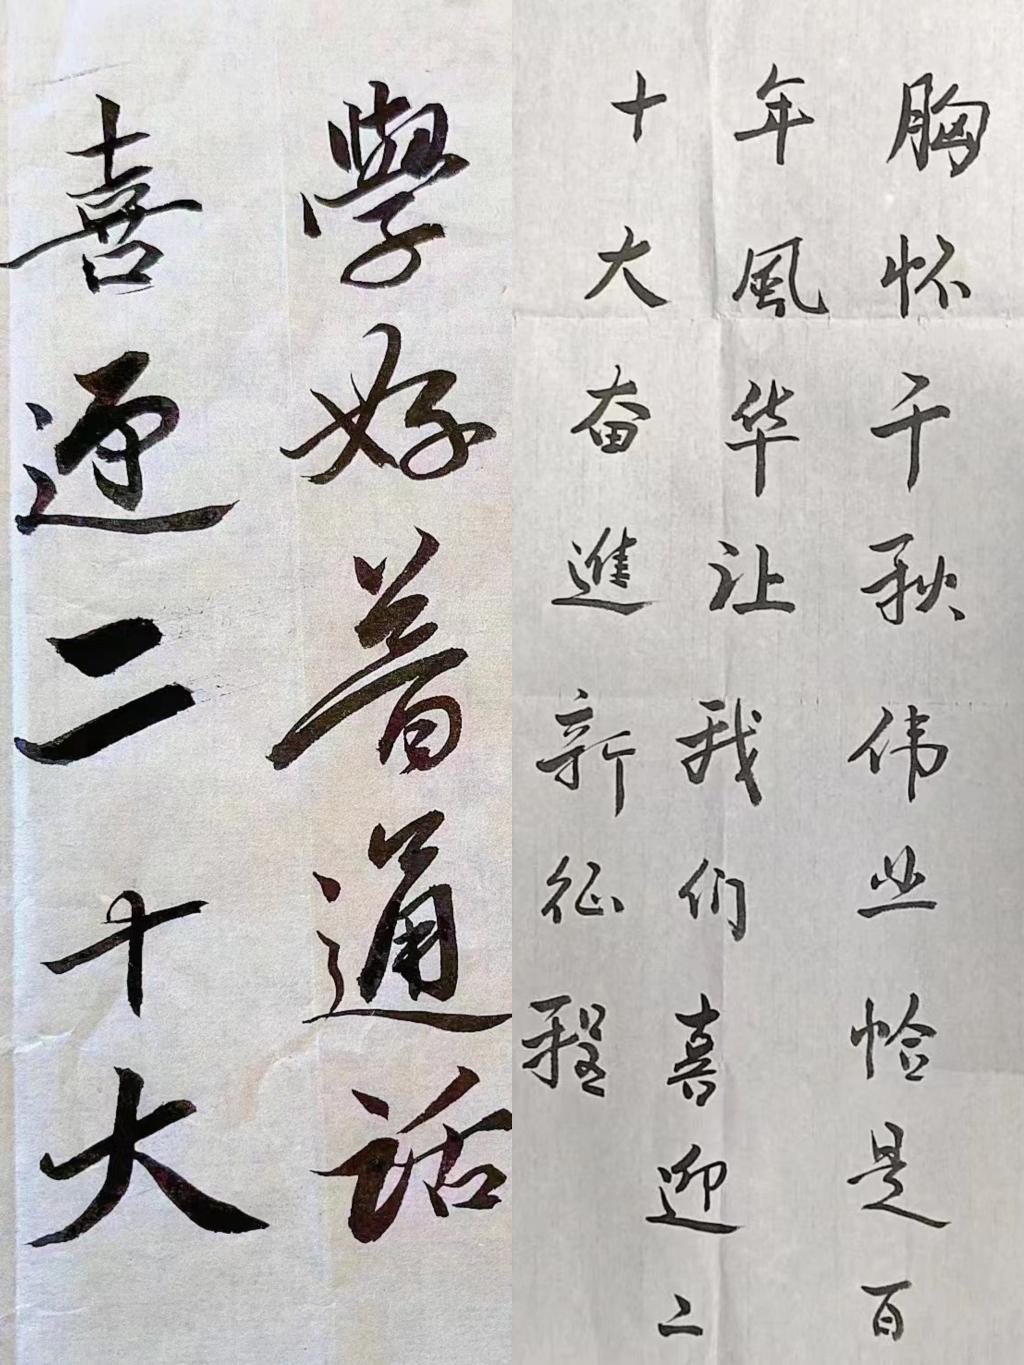 學好普通话
喜迎二十大
胸怀千秋伟业恰是百
年風华让我们喜迎二
十大奋進新征程